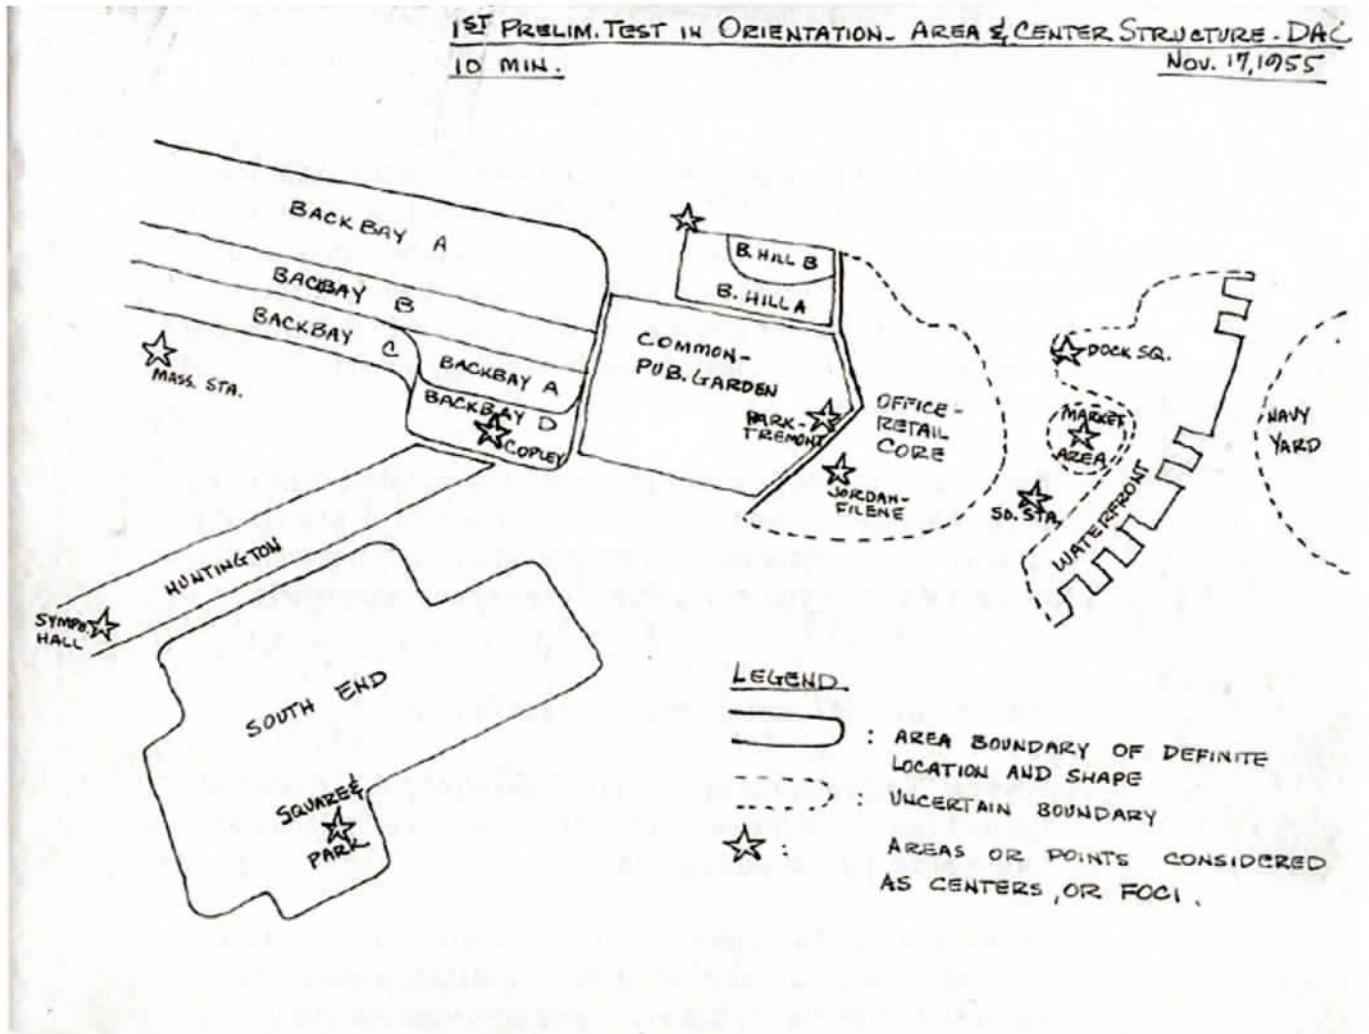 1ST PRELIM. TEST IN ORIENTATION - AREA & CENTER STRUCTURE - DAC
10 MIN.
NOV. 17, 1955
BACK BAY A
BACBAY B
BACKBAY C
BACKBAY A
BACKBAY D
COPLEY
MASS. STA.
B. HILL B
B. HILL A
COMMON-
PUB. GARDEN
PARK-
TREMONT
JORDAN-
FILENE
OFFICE-
RETAIL
CORE
DOCK SQ.
MARKET
AREA
SO. STA.
WATERFRONT
NAVY
YARD
HUNTINGTON
SYMPH.
HALL
SOUTH END
SQUARE &
PARK
LEGEND
: AREA BOUNDARY OF DEFINITE
LOCATION AND SHAPE
: UNCERTAIN BOUNDARY
: AREAS OR POINTS CONSIDERED
AS CENTERS, OR FOCI.